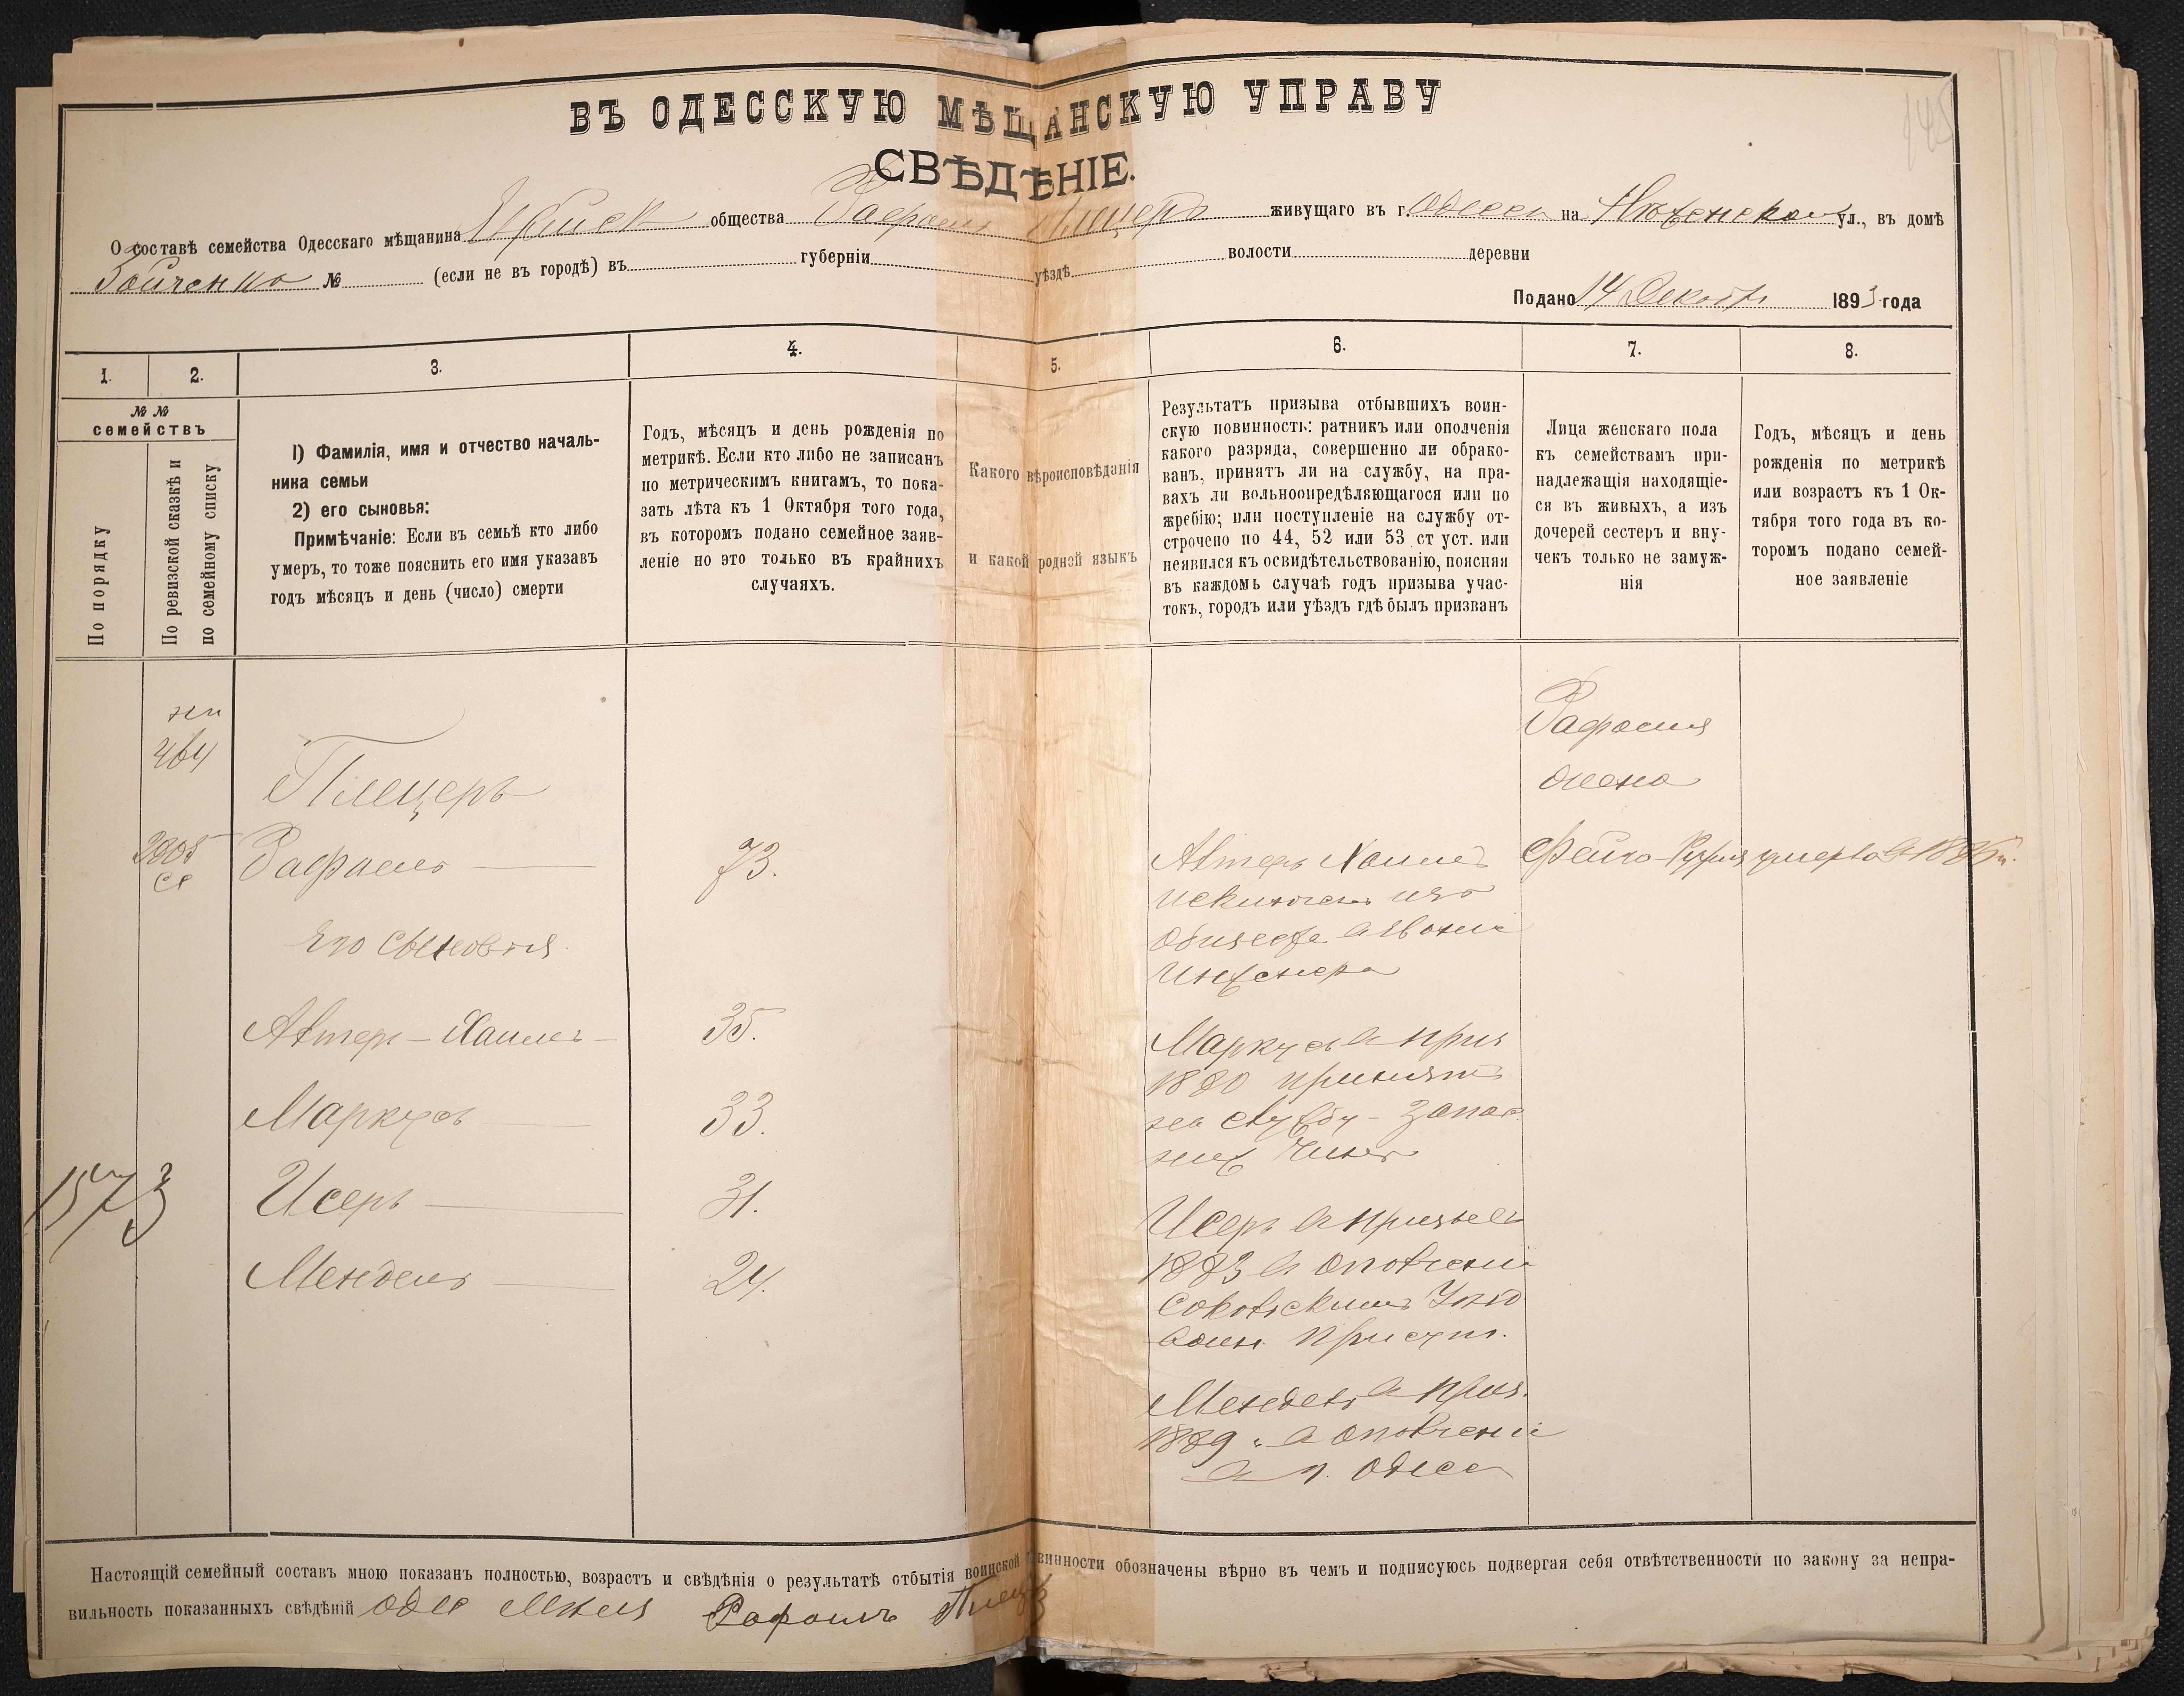 ВЪ ОДЕССКУЮ МѢЩАНСКУЮ УПРАВУ
СВѢДѢНІЕ.
О составѣ семейства Одесскаго мѣщанина общества Рафаилъ Плецеръ живущаго въ г. Одессѣ на Нѣжинской ул., въ домѣ
Бойченко № (если не въ городѣ) въ губерніи уѣздѣ волости деревни
Подано 14 Декабря 1893 года
1. 2. 3. 4. 5. 6. 7. 8.
№ №
семействъ
По порядку
По ревизской сказкѣ и
по семейному списку
1) Фамилія, имя и отчество началь-
ника семьи
2) его сыновья:
Примѣчаніе: Если въ семьѣ кто либо
умеръ, то тоже пояснить его имя указавъ
годъ мѣсяцъ и день (число) смерти
Годъ, мѣсяцъ и день рожденія по
метрикѣ. Если кто либо не записанъ
по метрическимъ книгамъ, то пока-
зать лѣта къ 1 Октября того года,
въ которомъ подано семейное заяв-
леніе но это только въ крайнихъ
случаяхъ.
Какого вѣроисповѣданія
и какой родной языкъ
Результатъ призыва отбывшихъ воин-
скую повинность: ратникъ или ополченія
какого разряда, совершенно ли обрако-
ванъ, принятъ ли на службу, на пра-
вахъ ли вольноопредѣляющагося или по
жребію; или поступленіе на службу от-
строчено по 44, 52 или 53 ст уст. или
неявился къ освидѣтельствованію, поясняя
въ каждомъ случаѣ годъ призыва учас-
токъ, городъ или уѣздъ гдѣ былъ призванъ
Лица женскаго пола
къ семействамъ при-
надлежащія находящіе-
ся въ живыхъ, а изъ
дочерей сестеръ и вну-
чекъ только не замуж-
нія
Годъ, мѣсяцъ и день
рожденія по метрикѣ
или возрастъ къ 1 Ок-
тября того года въ ко-
торомъ подано семей-
ное заявленіе
464
Плецеръ
2905
Рафаилъ 73.
Его сыновья
Автеръ-Хаимъ 35.
Маркусъ 33.
1573
Исеръ 31.
Мендель 24.
Автеръ Хаимъ
исключенъ изъ
Инженера
Маркусъ в приз
1880 принятъ
на службу - запас
ных чинъ
Исеръ в призыв
1883 в ополчени
Мендель в приз.
1889 в ополчени
в г. Одессе
Рафаила
жена
Фейга-Рухля умерла в
Настоящій семейный составъ мною показанъ полностью, возрастъ и свѣдѣнія о результатѣ отбытія воинской повинности обозначены вѣрно въ чемъ и подписуюсь подвергая себя отвѣтственности по закону за непра-
вильность показанныхъ свѣдѣній Рафаилъ Плецеръ